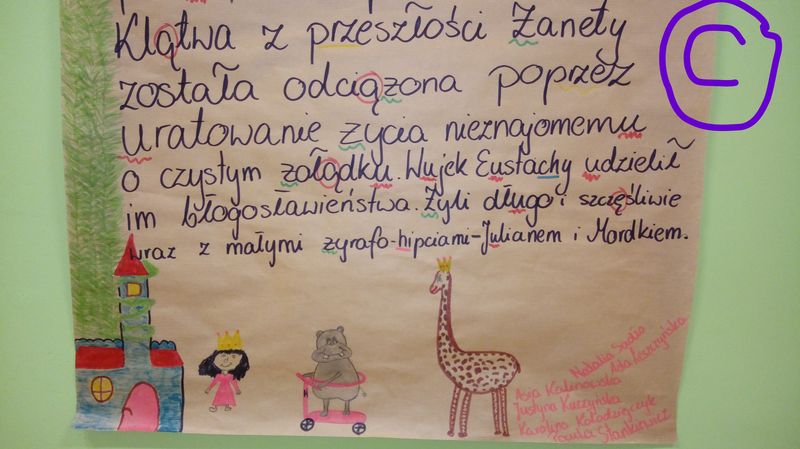 Klątwa z przeszłości Żanety
została odciążona poprzez
uratowanie życia nieznajomemu
o czystym żołądku. Wujek Eustachy udzielił
im błogosławieństwa. Żyli długo i szczęśliwie
wraz z małymi żyrafo-hipciami-Julianem i Mordkiem.
C
Natalia
Ada Leszczyńska
Asia Kalinowska
Justyna Kuczyńska
Karolina Kołodziejczyk
Paula Stankiewicz